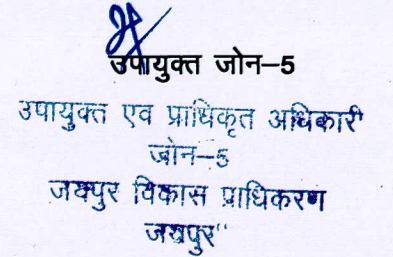 उपायुक्त जोन–5
उपायुक्त एव प्राधिकृत अधिकारी
जोन–5
जयपुर विकास प्राधिकरण
जयपुर"